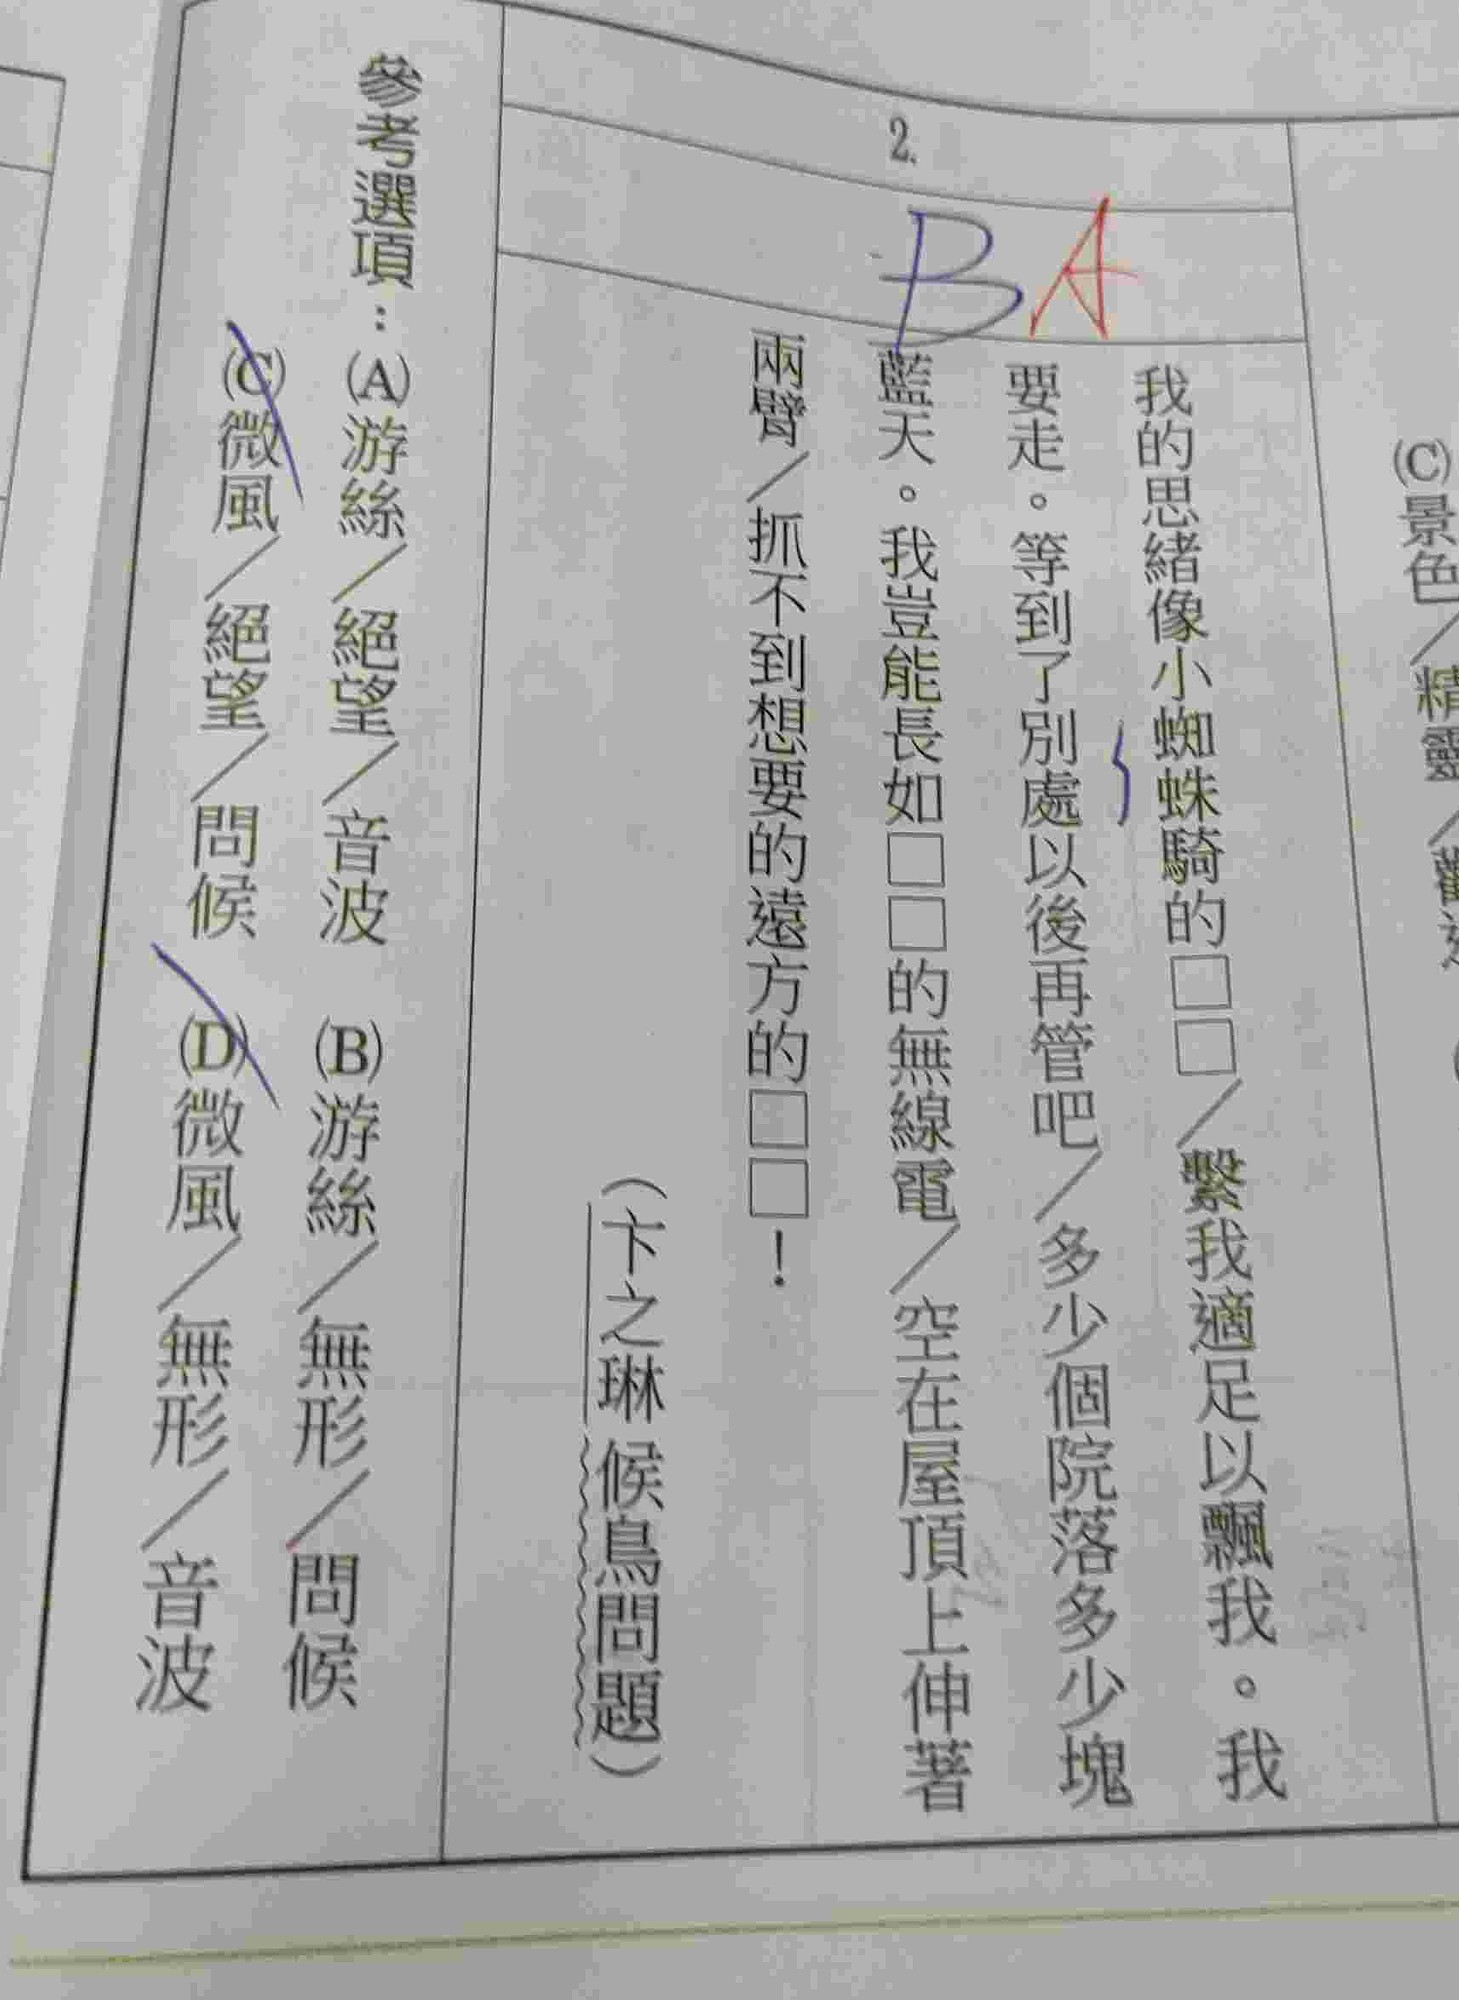 (C)景色／精靈／
2.
B A
我的思緒像小蜘蛛騎的□□／繫我適足以飄我。我
要走。等到了別處以後再管吧／多少個院落多少塊
藍天。我豈能長如□□的無線電／空在屋頂上伸著
兩臂／抓不到想要的遠方的□□！
（卞之琳 候鳥問題）
參考選項：(A)游絲／絕望／音波 (B)游絲／無形／問候
(C)微風／絕望／問候 (D)微風／無形／音波